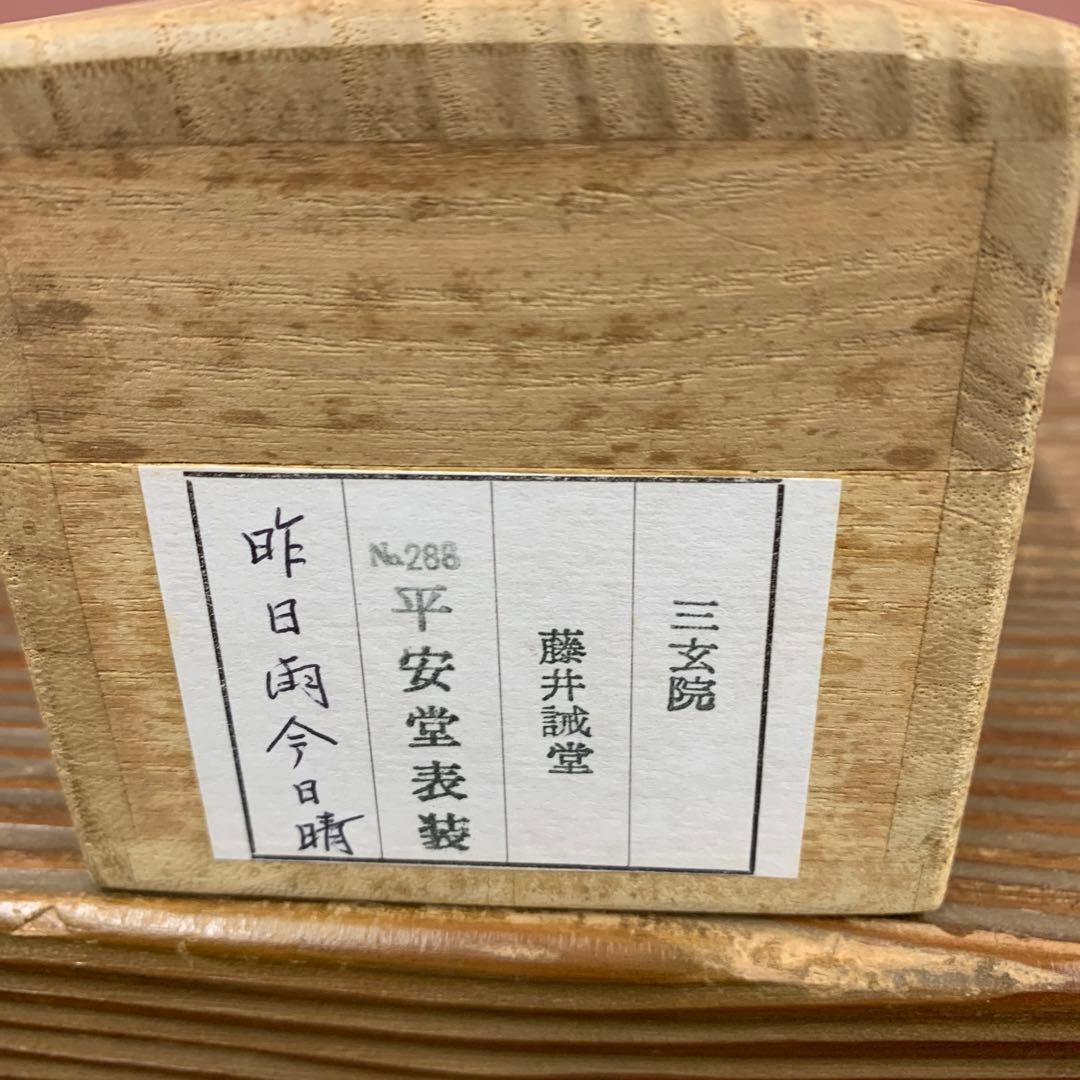 三玄院
藤井誡堂
No.288
平安堂表装
昨日雨今日晴